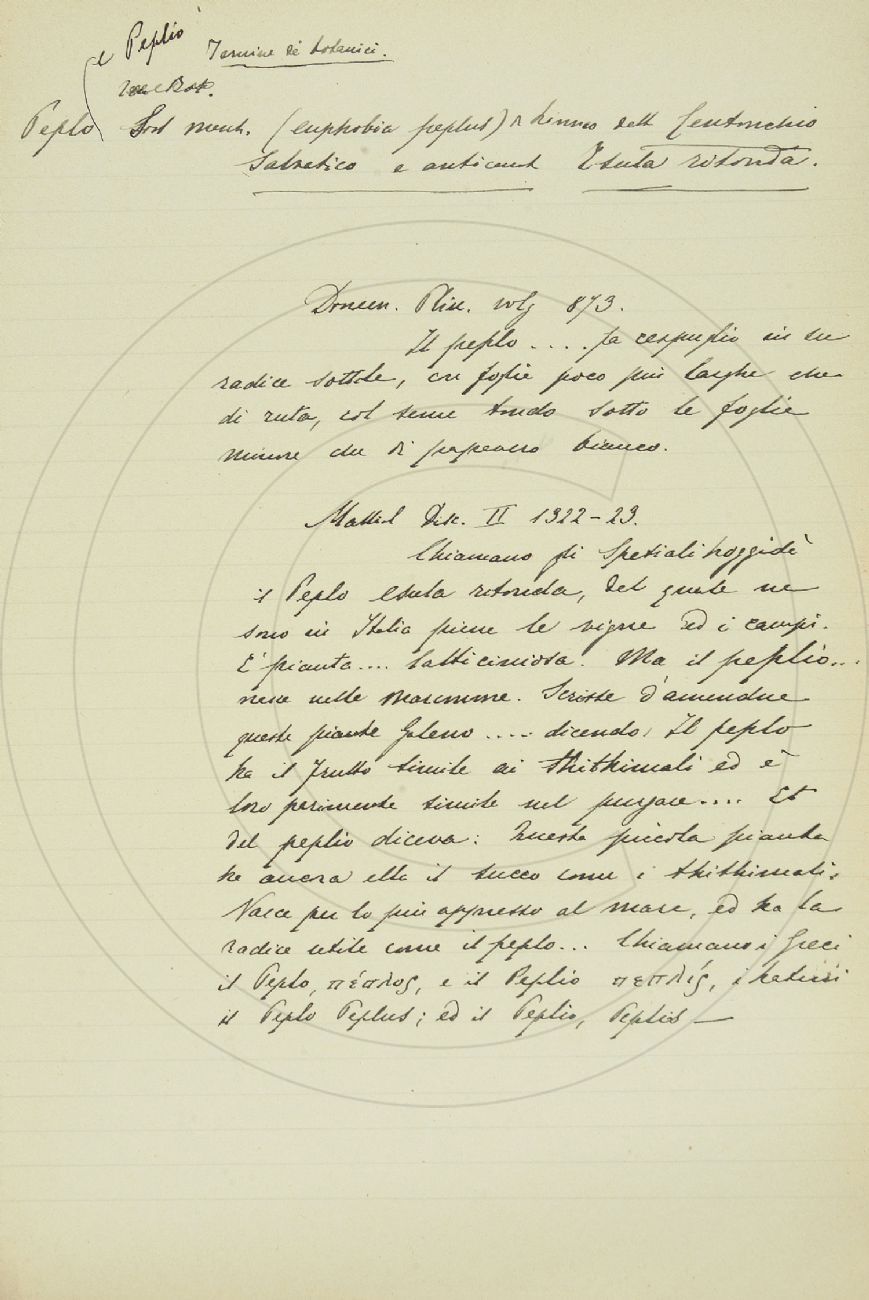 e Peplio
Termine de' botanici.
Peplo Sost masch. (euphobia peplus) è hanno dett Centonchio
Salvatico e anticamt Esula rotonda.
Domen. Plin. volg 873.
Il peplo .... fa cespuglio in su
radice sottile, con foglie poco più larghe che
di ruta, col seme tondo sotto le foglie
minore che di papavero bianco.
Mattiol Disc. II 1322-23.
Chiamano gli Speziali hoggidì
il Peplo Esula rotonda, del quale ne
sono in Italia piene le vigne ed i campi.
E' pianta.... latticiniosa. Ma il peplio...
nasce nelle maremme. Scrisse d'amendue
queste piante Galeno .... dicendo: Il peplo
ha il frutto simile ai thithimali ed è
loro parimente simile nel purgare.... Et
del peplio diceva: Questa piccola pianta
ha ancora ella il succo come i thithimali.
Nasce per lo più appresso al mare, ed ha la
radice utile come il peplo... Chiamano i Greci
il Peplo, πέπλος, e il Peplio πεπλίς, i Latini
il Peplo Peplus; ed il Peplio, Peplis —